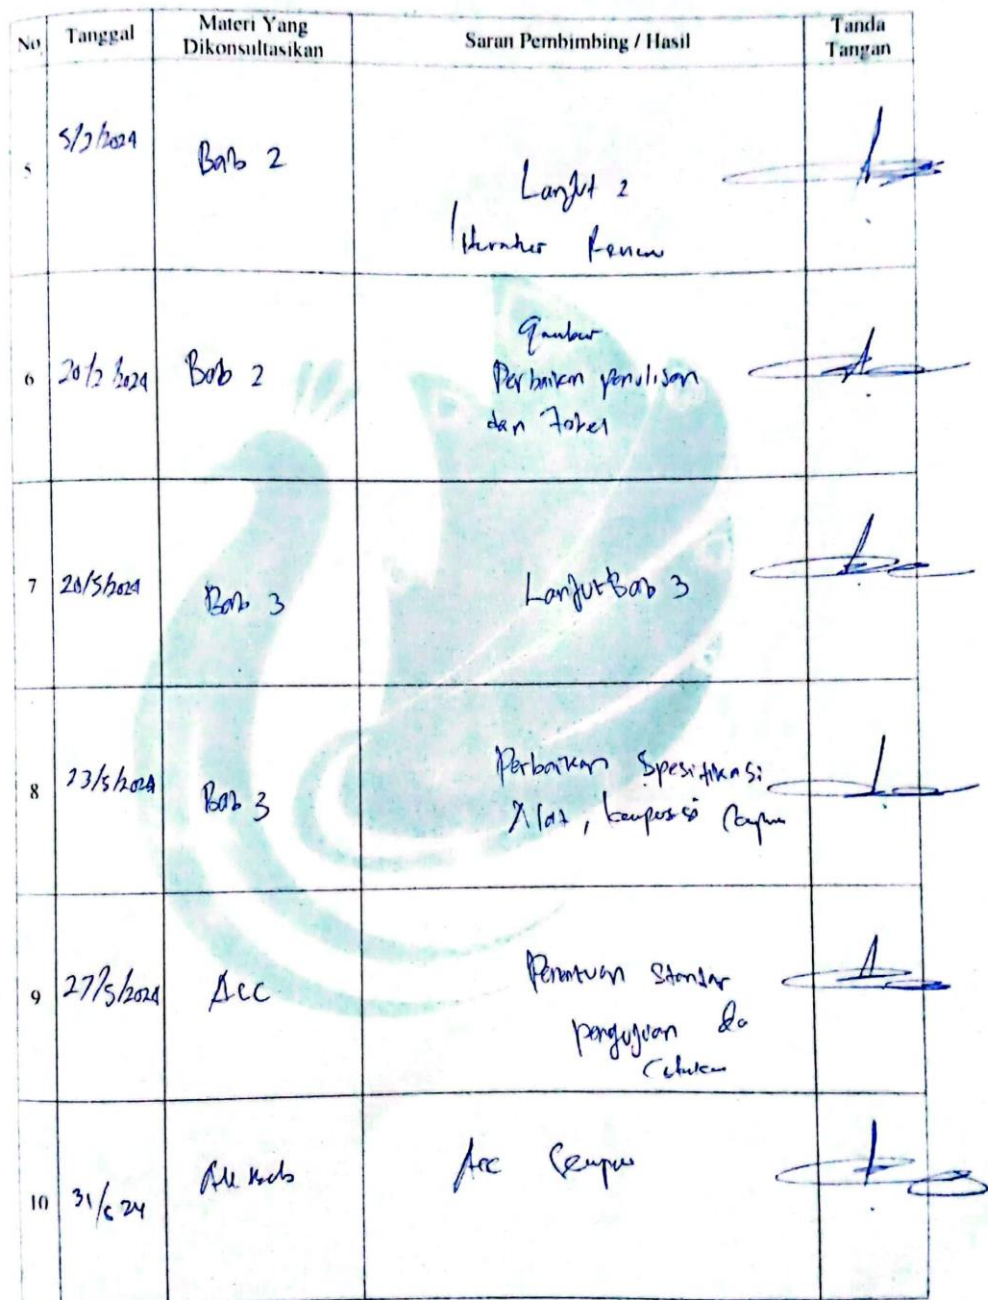 No. Tanggal Materi Yang Dikonsultasikan Saran Pembimbing / Hasil Tanda Tangan
5 5/2/2024 Bab 2 Lanjut 2
6 20/2/2024 Bab 2 gambar
Perbaikan penulisan
dan Tabel
7 20/5/2024 Bab 3 Lanjut Bab 3
8 23/5/2024 Bab 3 Perbaikan Spesifikasi
Alat,
9 27/5/2024 Acc Penentuan Standar
pengujian
10 Acc